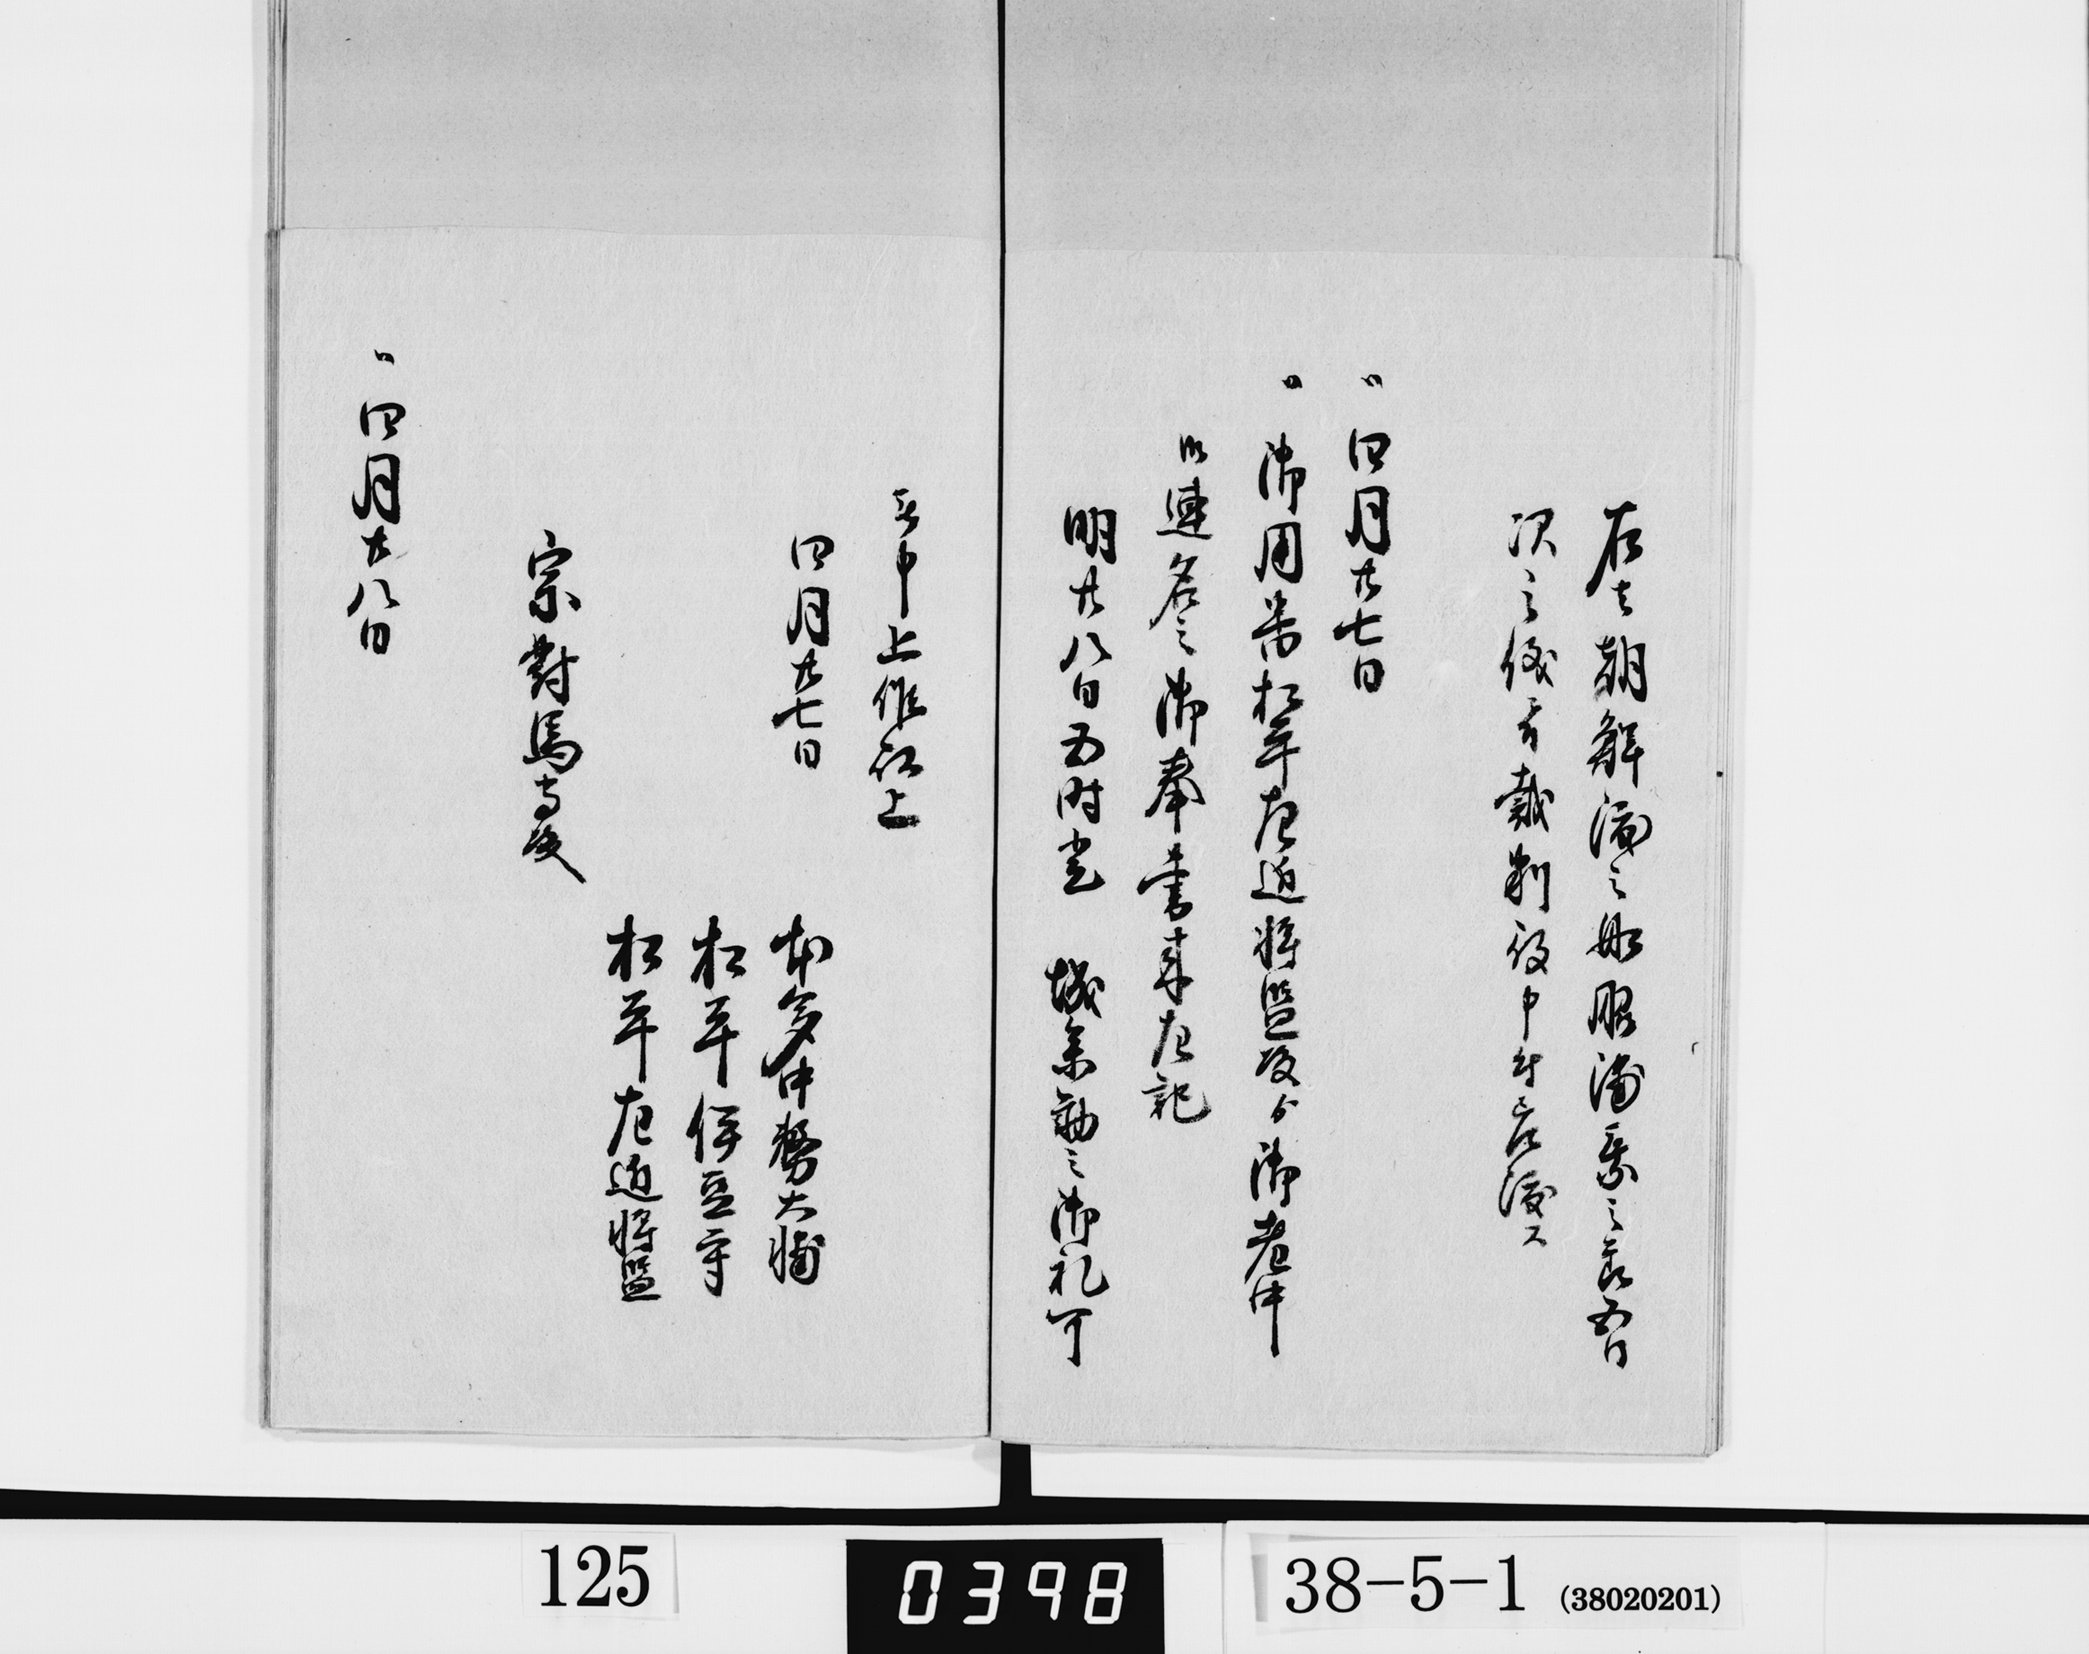 右者朝鮮滯之船服滯乗之節五日
次之儀ニ付裁判役申付之候ス
〃四月廿七日
〃御用番松平左近将監殿ゟ御老中
御連名之御奉書来左記
明廿八日五時登 城参勤之御礼可
被申上候以上
四月廿七日
本多中務大輔
松平伊豆守
松平左近将監
宗對馬守殿
〃四月廿八日
125
0398
38-5-1 (38020201)